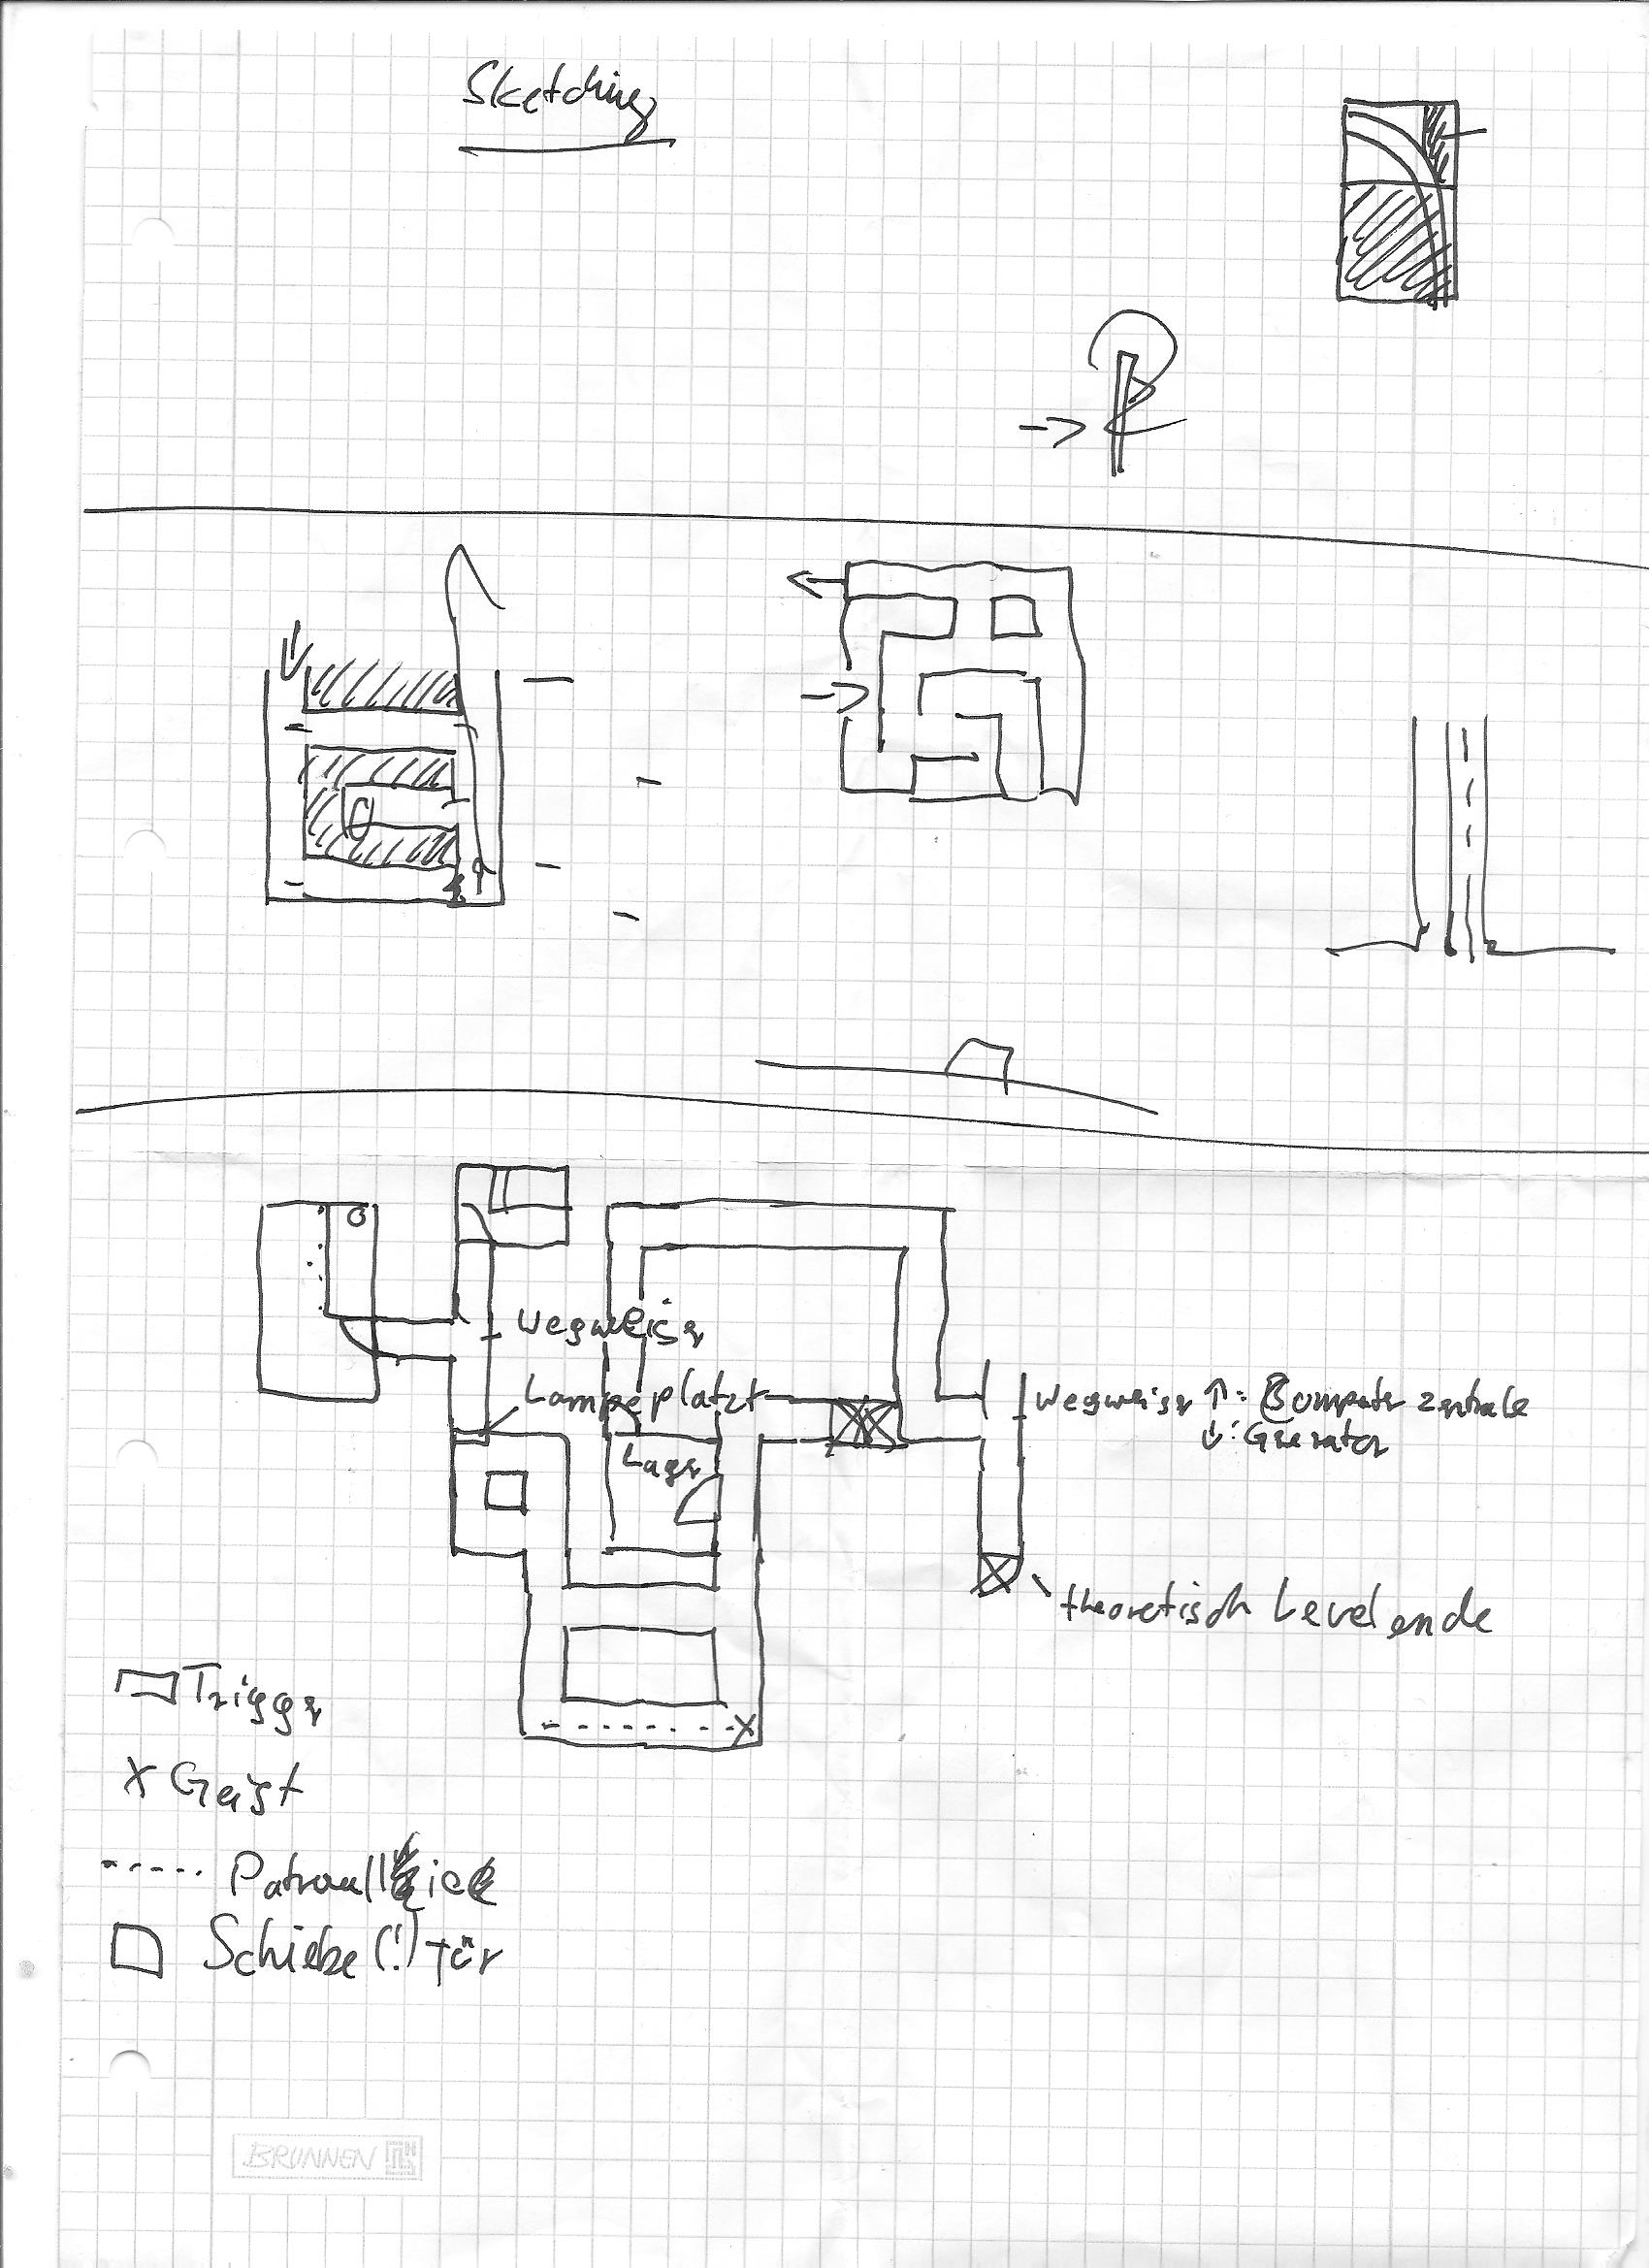 Sketching
Wegweiser
Lampe platzt
Lager
Wegweiser ↑: Computer zentrale
↓: Generator
theoretisch Levelende
Trigger
X Geist
Patroullie
Schiebe(!)Tür
BRUNNEN